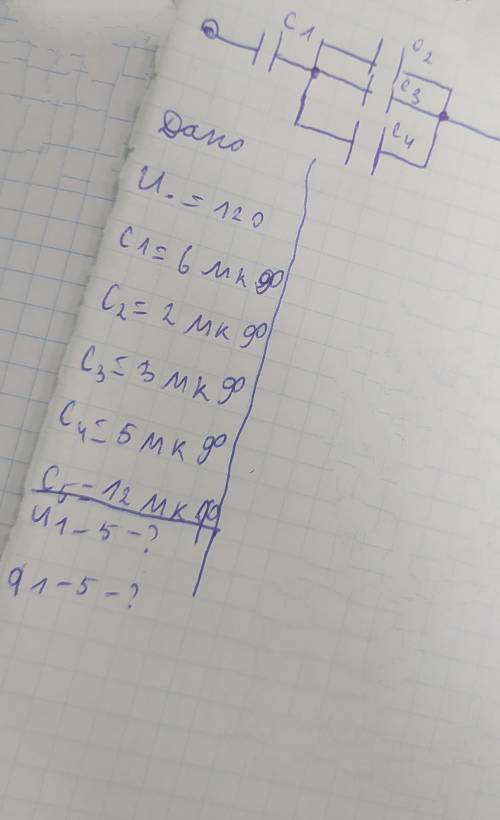 C1
C2
C3
C4
Дано
U. = 120
C1 = 6 мкф
C2 = 2 мкф
C3 = 3 мкф
C4 = 5 мкф
C5 - 12 мкф
U1-5-?
q1-5-?